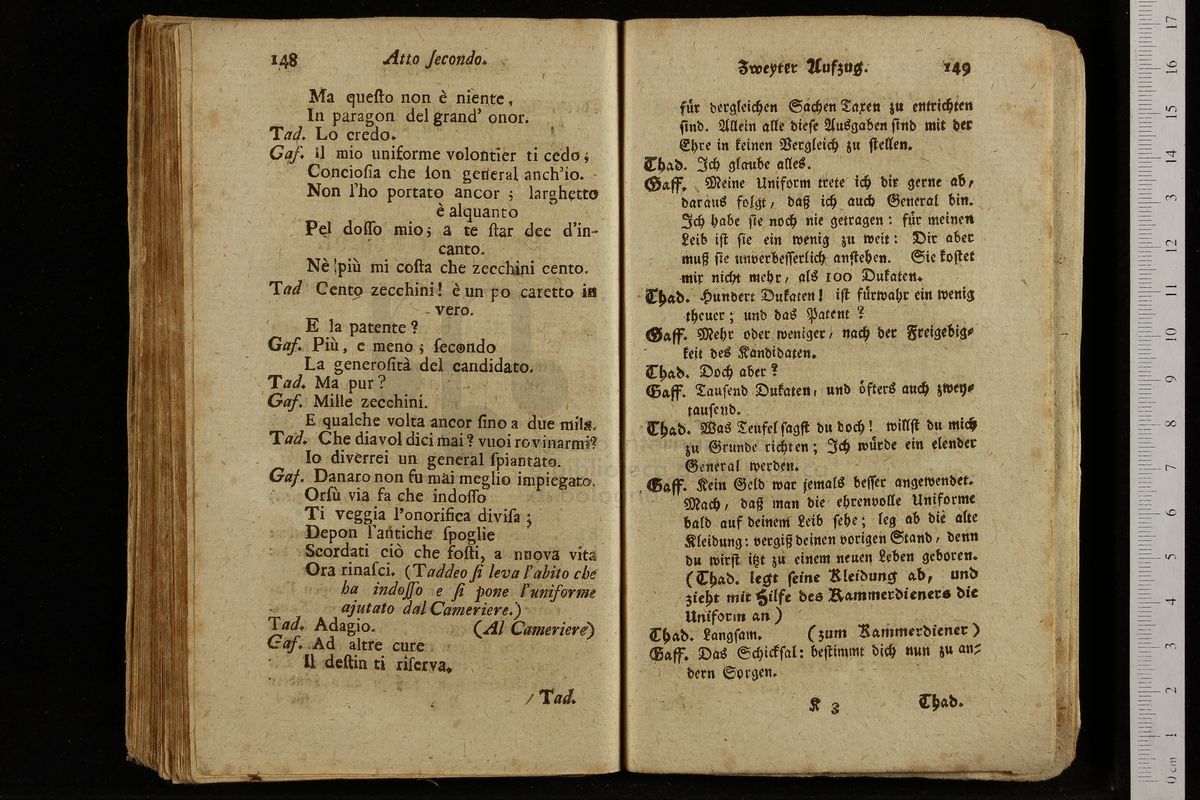 148 Atto ſecondo.
Ma queſto non è niente,
In paragon del grand' onor.
Tad. Lo credo.
Gaf. il mio uniforme volontier ti cedo;
Conciofia che ſon general anch'io.
Non l'ho portato ancor; larghetto
è alquanto
Pel doſſo mio; a te ſtar dee d'in-
canto.
Nè più mi coſta che zecchini cento.
Tad Cento zecchini! è un po caretto in
vero.
E la patente?
Gaf. Più, e meno; ſecondo
La generoſità del candidato.
Tad. Ma pur?
Gaf. Mille zecchini.
E qualche volta ancor ſino a due mila.
Tad. Che diavol dici mai? vuoi rovinarmi?
Io diverrei un general ſpiantato.
Gaf. Danaro non fu mai meglio impiegato.
Orſù via fa che indoſſo
Ti veggia l'onorifica diviſa;
Depon l'antiche ſpoglie
Scordati ciò che foſti, a nuova vita
Ora rinaſci. (Taddeo ſi leva l'abito che
ha indoſſo e ſi pone l'uniforme
ajutato dal Cameriere.)
Tad. Adagio. (Al Cameriere)
Gaf. Ad altre cure
Il deſtin ti riſerva.
Tad.
Zweyter Aufzug. 149
für dergleichen Sachen Taxen zu entrichten
ſind. Allein alle dieſe Ausgaben ſind mit der
Ehre in keinen Vergleich zu ſtellen.
Thad. Ich glaube alles.
Gaff. Meine Uniform trete ich dir gerne ab,
daraus folgt, daß ich auch General bin.
Ich habe ſie noch nie getragen: für meinen
Leib iſt ſie ein wenig zu weit: Dir aber
muß ſie unverbeſſerlich anſtehen. Sie koſtet
mir nicht mehr, als 100 Dukaten.
Thad. Hundert Dukaten! iſt fürwahr ein wenig
theuer; und das Patent?
Gaff. Mehr oder weniger, nach der Freigebig-
keit des Kandidaten.
Thad. Doch aber?
Gaff. Tauſend Dukaten, und öfters auch zwey-
tauſend.
Thad. Was Teufel ſagſt du doch! willſt du mich
zu Grunde richten; Ich würde ein elender
General werden.
Gaff. Kein Geld war jemals beſſer angewendet.
Mach, daß man die ehrenvolle Uniforme
bald auf deinem Leib ſehe; leg ab die alte
Kleidung: vergiß deinen vorigen Stand, denn
du wirſt itzt zu einem neuen Leben geboren.
(Thad. legt ſeine Kleidung ab, und
zieht mit Hilfe des Kammerdieners die
Uniform an)
Thad. Langſam. (zum Kammerdiener)
Gaff. Das Schickſal: beſtimmt dich nun zu an-
dern Sorgen.
K 3 Thad.